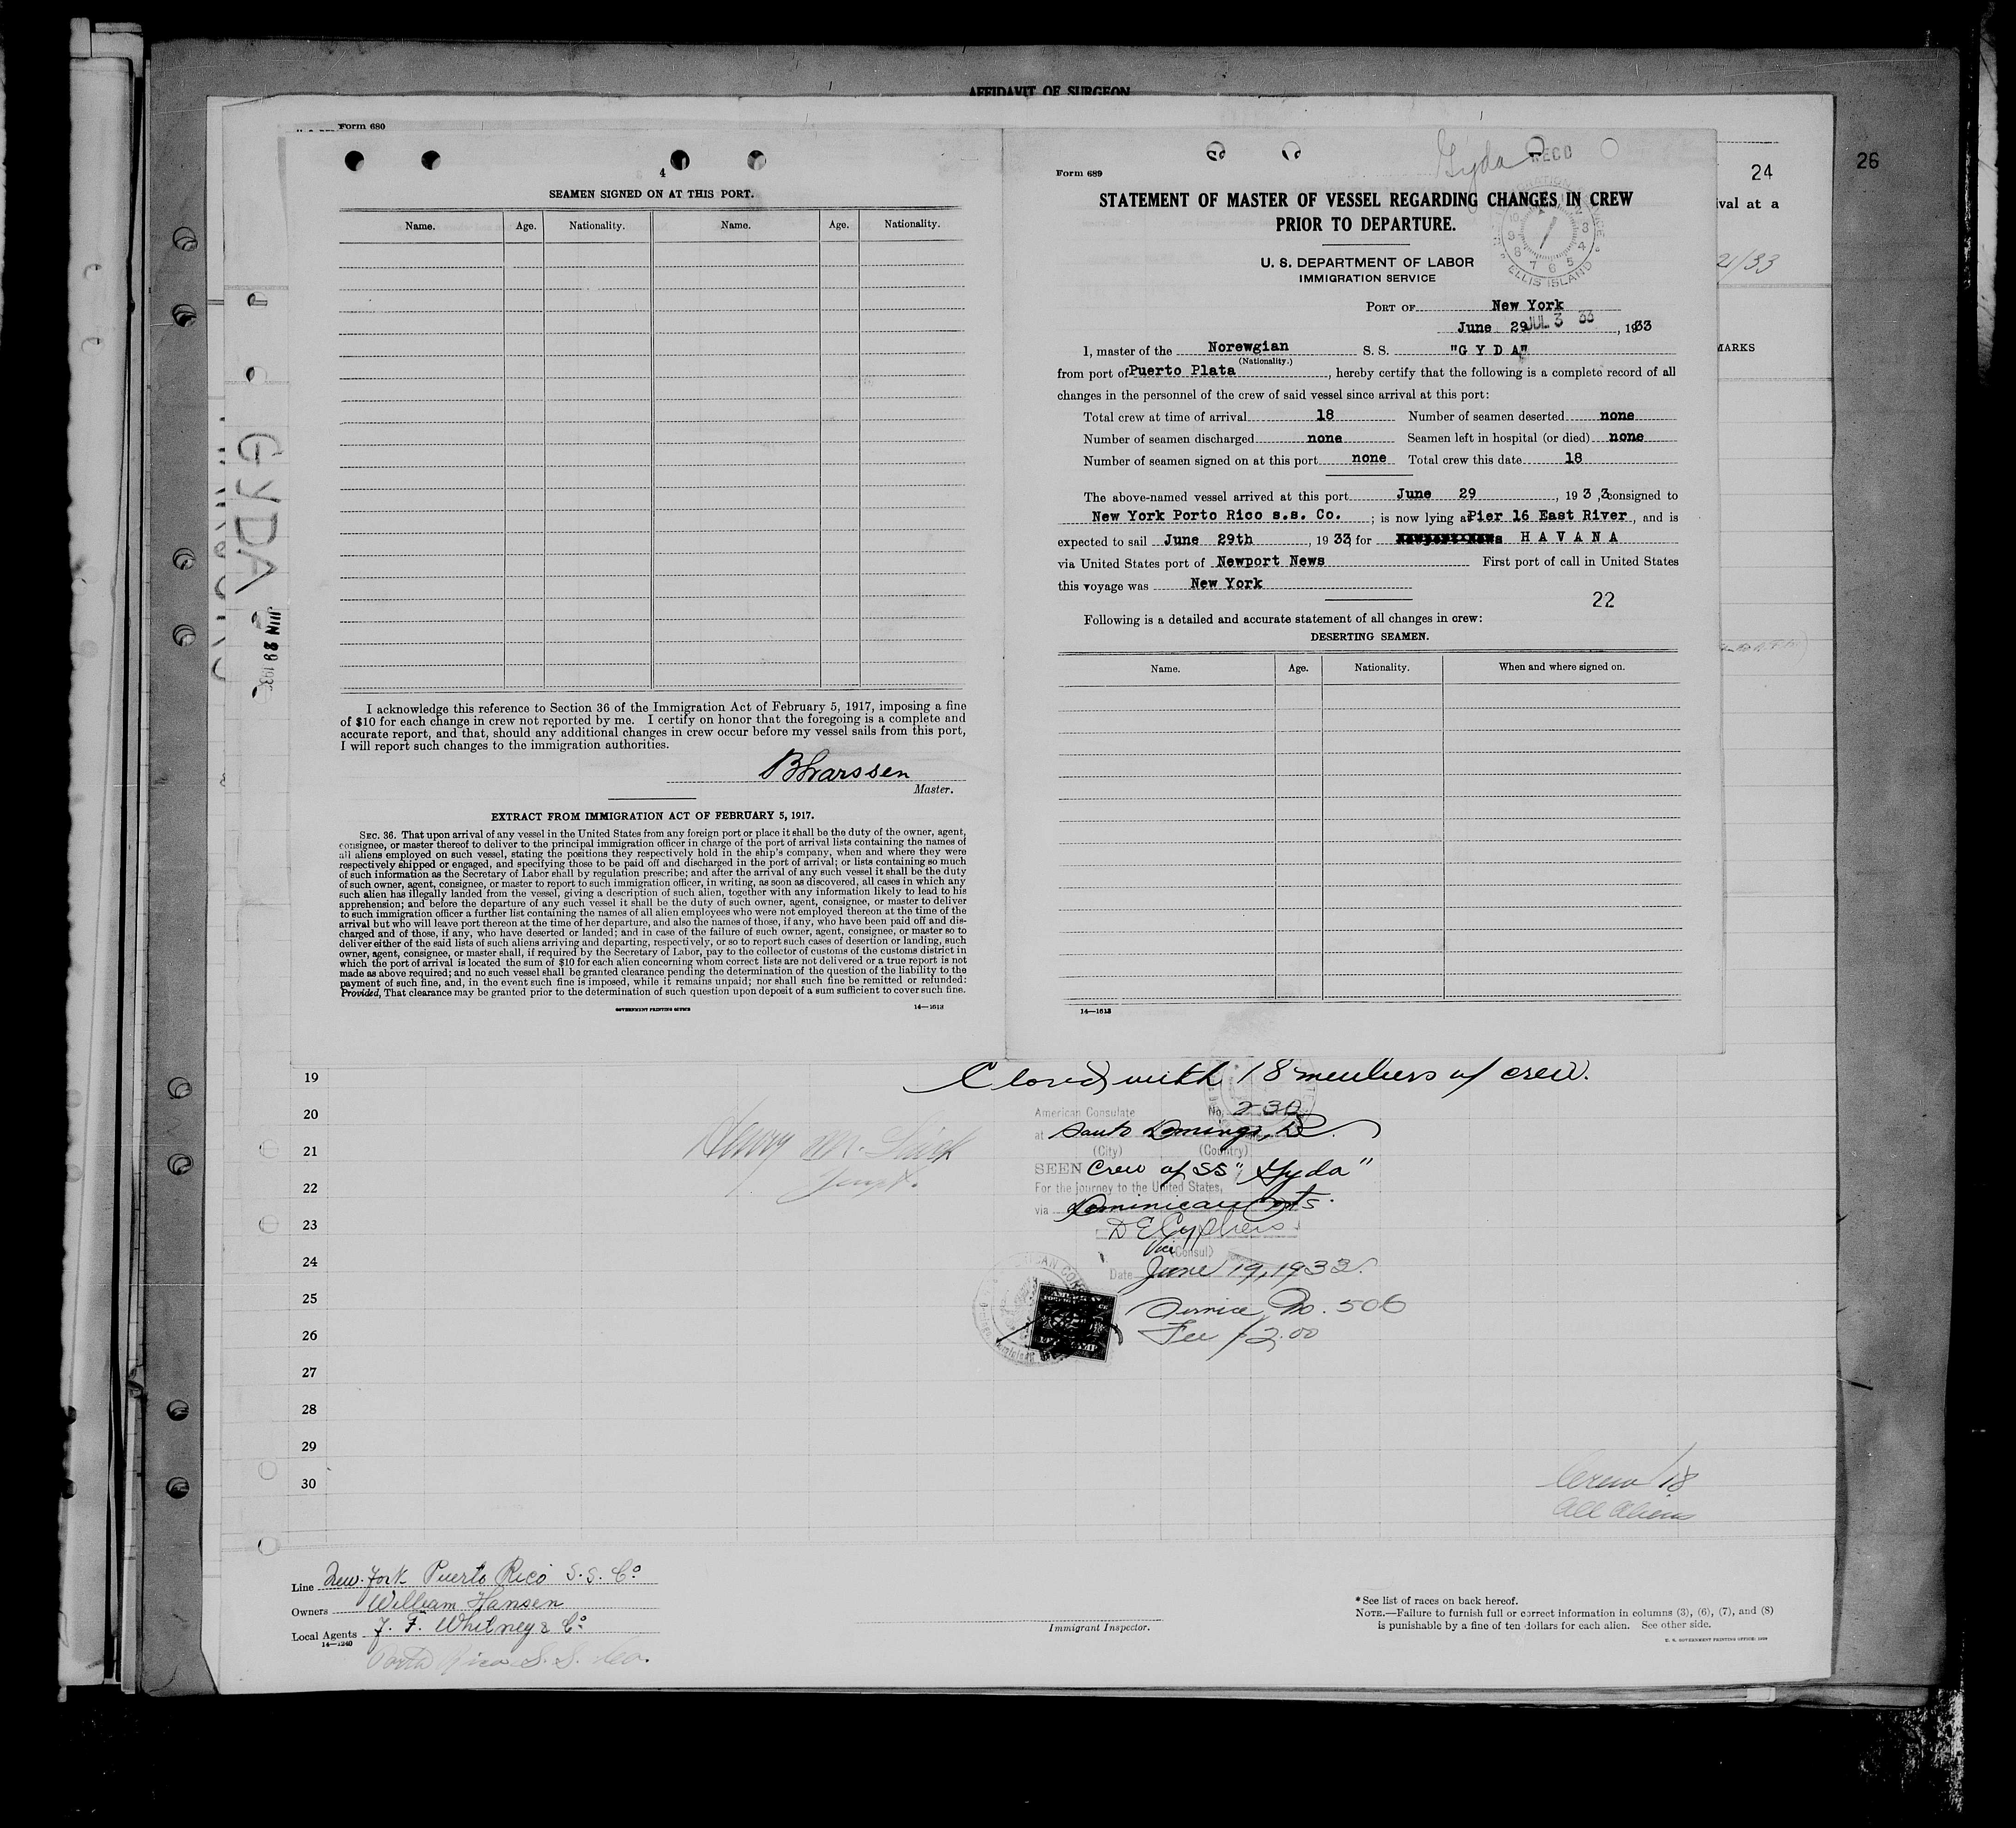 AFFIDAVIT OF SURGEON
26
24
ival at a
21/33
MARKS
Form 680
4
SEAMEN SIGNED ON AT THIS PORT.
Name. Age. Nationality. Name. Age. Nationality.
I acknowledge this reference to Section 36 of the Immigration Act of February 5, 1917, imposing a fine
of $10 for each change in crew not reported by me. I certify on honor that the foregoing is a complete and
accurate report, and that, should any additional changes in crew occur before my vessel sails from this port,
I will report such changes to the immigration authorities.
B Larssen
Master.
EXTRACT FROM IMMIGRATION ACT OF FEBRUARY 5, 1917.
SEC. 36. That upon arrival of any vessel in the United States from any foreign port or place it shall be the duty of the owner, agent,
consignee, or master thereof to deliver to the principal immigration officer in charge of the port of arrival lists containing the names of
all aliens employed on such vessel, stating the positions they respectively hold in the ship's company, when and where they were
respectively shipped or engaged, and specifying those to be paid off and discharged in the port of arrival; or lists containing so much
of such information as the Secretary of Labor shall by regulation prescribe; and after the arrival of any such vessel it shall be the duty
of such owner, agent, consignee, or master to report to such immigration officer, in writing, as soon as discovered, all cases in which any
such alien has illegally landed from the vessel, giving a description of such alien, together with any information likely to lead to his
apprehension; and before the departure of any such vessel it shall be the duty of such owner, agent, consignee, or master to deliver
to such immigration officer a further list containing the names of all alien employees who were not employed thereon at the time of the
arrival but who will leave port thereon at the time of her departure, and also the names of those, if any, who have been paid off and dis-
charged and of those, if any, who have deserted or landed; and in case of the failure of such owner, agent, consignee, or master so to
deliver either of the said lists of such aliens arriving and departing, respectively, or so to report such cases of desertion or landing, such
owner, agent, consignee, or master shall, if required by the Secretary of Labor, pay to the collector of customs of the customs district in
which the port of arrival is located the sum of $10 for each alien concerning whom correct lists are not delivered or a true report is not
made as above required; and no such vessel shall be granted clearance pending the determination of the question of the liability to the
payment of such fine, and, in the event such fine is imposed, while it remains unpaid; nor shall such fine be remitted or refunded:
Provided, That clearance may be granted prior to the determination of such question upon deposit of a sum sufficient to cover such fine.
GOVERNMENT PRINTING OFFICE 14—1613
GYDA
JUN 29 193
Gyda
RECD
Form 689
STATEMENT OF MASTER OF VESSEL REGARDING CHANGES IN CREW
PRIOR TO DEPARTURE.
U. S. DEPARTMENT OF LABOR
IMMIGRATION SERVICE
ELLIS ISLAND
PORT OF New York
June 29 JUL 3 33, 1933
I, master of the Norewgian S. S. "G Y D A"
(Nationality.)
from port of Puerto Plata, hereby certify that the following is a complete record of all
changes in the personnel of the crew of said vessel since arrival at this port:
Total crew at time of arrival 18 Number of seamen deserted none
Number of seamen discharged none Seamen left in hospital (or died) none
Number of seamen signed on at this port none Total crew this date 18
The above-named vessel arrived at this port June 29, 193 3, consigned to
New York Porto Rico s.s. Co.; is now lying at Pier 16 East River, and is
expected to sail June 29th, 1933, for Newport News H A V A N A
via United States port of Newport News First port of call in United States
this voyage was New York
22
Following is a detailed and accurate statement of all changes in crew:
DESERTING SEAMEN.
Name. Age. Nationality. When and where signed on.
14—1613
Closed with 18 members of crew.
19
20
21
22
23
24
25
26
27
28
29
30
American Consulate No. 230
at Santo Domingo, D.R.
(City) (Country)
SEEN Crew of SS "Gyda"
For the journey to the United States,
via Dominican Pts.
D E Cyphers
Vice (Consul)
Date June 19, 1933.
Service No. 506
Fee $2.00
Crew 18
all aliens
Line New-York Puerto Rico S.S. Co
Owners William Hansen
Local Agents F. F. Whitney & Co
14—1240
Porto Rico S.S. Co.
Immigrant Inspector.
* See list of races on back hereof.
NOTE.—Failure to furnish full or correct information in columns (3), (6), (7), and (8)
is punishable by a fine of ten dollars for each alien. See other side.
U. S. GOVERNMENT PRINTING OFFICE: 1929